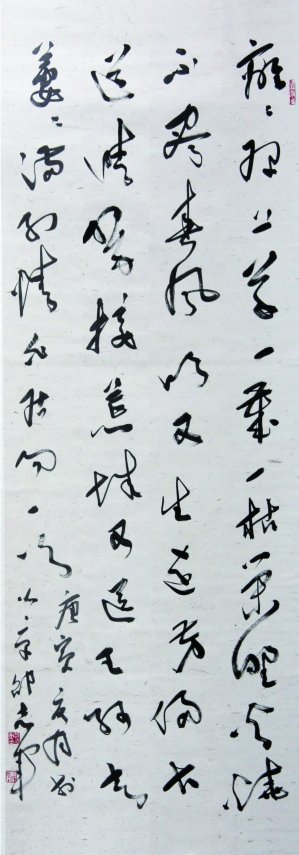 離々原上草一歲一枯榮野火燒
不盡春风吹又生远芳侵古
道晴翠接荒城又送王孫去
萋々满别情白居易一首
庚寅